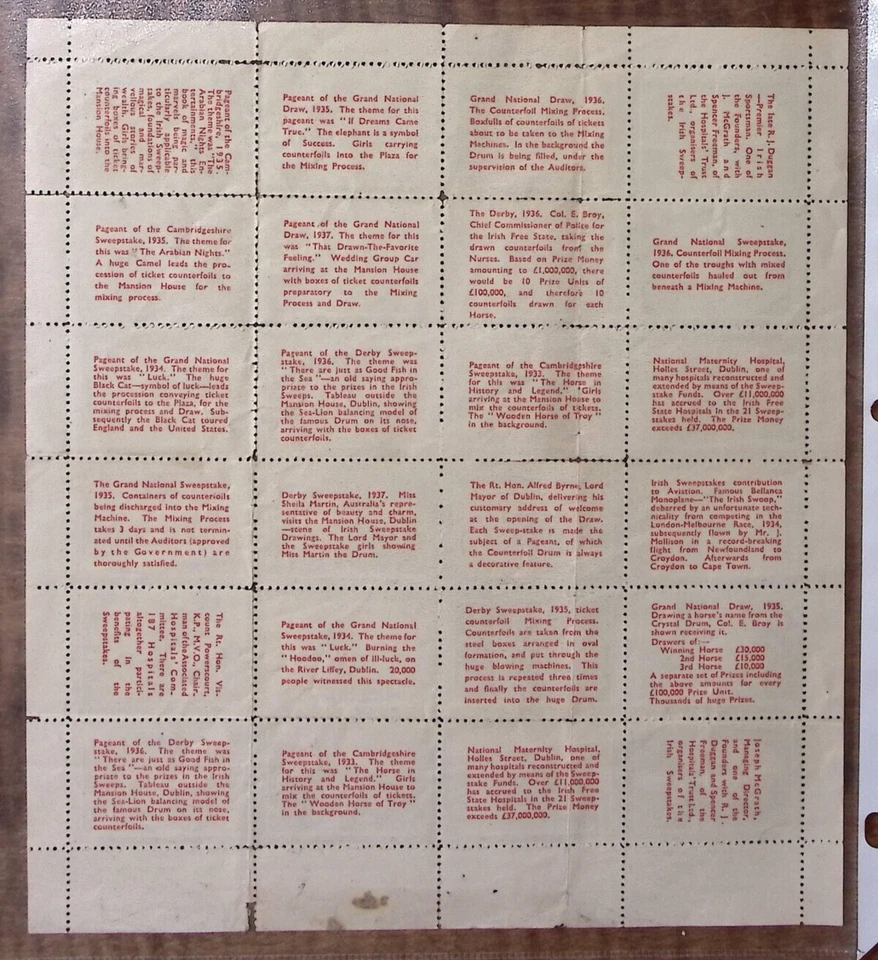 Pageant of the Cam-
bridgeshire, 1935.
The theme was "The
Arabian Nights En-
tertainments," this
book of magic and
marvels being par-
ticularly applicable
to the Irish Sweep-
stakes, foundations of
magical and mar-
vellous stories of
wealth. Girls bring-
ing boxes of ticket
counterfoils into the
Mansion House.
Pageant of the Grand National
Draw, 1935. The theme for this
pageant was "If Dreams Came
True." The elephant is a symbol
of Success. Girls carrying
counterfoils into the Plaza for
the Mixing Process.
Grand National Draw, 1936.
The Counterfoil Mixing Process.
Boxfulls of counterfoils of tickets
about to be taken to the Mixing
Machines. In the background the
Drum is being filled, under the
supervision of the Auditors.
The late R. J. Duggan
—Premier Irish
Sportsman. One of
the Founders, with
J. McGrath and
Spencer Freeman, of
the Hospitals' Trust
Ltd., organisers of
the Irish Sweep-
stakes.
Pageant of the Cambridgeshire
Sweepstake, 1935. The theme for
this was "The Arabian Nights."
A huge Camel leads the pro-
cession of ticket counterfoils to
the Mansion House for the
mixing process.
Pageant of the Grand National
Draw, 1937. The theme for this
was "That Drawn-The-Favorite
Feeling." Wedding Group Car
arriving at the Mansion House
with boxes of ticket counterfoils
preparatory to the Mixing
Process and Draw.
The Derby, 1936. Col. E. Broy,
Chief Commissioner of Police for
the Irish Free State, taking the
drawn counterfoils from the
Nurses. Based on Prize Money
amounting to £1,000,000, there
would be 10 Prize Units of
£100,000, and therefore 10
counterfoils drawn for each
Horse.
Grand National Sweepstake,
1936, Counterfoil Mixing Process.
One of the troughs with mixed
counterfoils hauled out from
beneath a Mixing Machine.
Pageant of the Grand National
Sweepstake, 1934. The theme for
this was "Luck." The huge
Black Cat—symbol of luck—leads
the procession conveying ticket
counterfoils to the Plaza, for the
mixing process and Draw. Sub-
sequently the Black Cat toured
England and the United States.
Pageant of the Derby Sweep-
stake, 1936. The theme was
"There are just as Good Fish in
the Sea"—an old saying appro-
priate to the prizes in the Irish
Sweeps. Tableau outside the
Mansion House, Dublin, showing
the Sea-Lion balancing model of
the famous Drum on its nose,
arriving with the boxes of ticket
counterfoils.
Pageant of the Cambridgeshire
Sweepstake, 1933. The theme
for this was "The Horse in
History and Legend." Girls
arriving at the Mansion House to
mix the counterfoils of tickets.
The "Wooden Horse of Troy"
in the background.
National Maternity Hospital,
Holles Street, Dublin, one of
many hospitals reconstructed and
extended by means of the Sweep-
stake Funds. Over £11,000,000
has accrued to the Irish Free
State Hospitals in the 21 Sweep-
stakes held. The Prize Money
exceeds £37,000,000.
The Grand National Sweepstake,
1935. Containers of counterfoils
being discharged into the Mixing
Machine. The Mixing Process
takes 3 days and is not termin-
ated until the Auditors (approved
by the Government) are
thoroughly satisfied.
Derby Sweepstake, 1937. Miss
Sheila Martin, Australia's repre-
sentative of beauty and charm,
visits the Mansion House, Dublin
—scene of Irish Sweepstake
Drawings. The Lord Mayor and
the Sweepstake girls showing
Miss Martin the Drum.
The Rt. Hon. Alfred Byrne, Lord
Mayor of Dublin, delivering his
customary address of welcome
at the opening of the Draw.
Each Sweep-stake is made the
subject of a Pageant, of which
the Counterfoil Drum is always
a decorative feature.
Irish Sweepstakes contribution
to Aviation. Famous Bellanca
Monoplane—"The Irish Swoop,"
debarred by an unfortunate tech-
nicality from competing in the
London-Melbourne Race, 1934,
subsequently flown by Mr. J.
Mollison in a record-breaking
flight from Newfoundland to
Croydon. Afterwards from
Croydon to Cape Town.
The Rt. Hon. Vis-
count Powerscourt,
K.P., M.V.O., Chair-
man of the Associated
Hospitals' Com-
mittee. There are
187 Hospitals
altogether partici-
pating in the
benefits of the
Sweepstakes.
Pageant of the Grand National
Sweepstake, 1934. The theme for
this was "Luck." Burning the
"Hoodoo," omen of ill-luck, on
the River Liffey, Dublin. 20,000
people witnessed this spectacle.
Derby Sweepstake, 1935, ticket
counterfoil Mixing Process.
Counterfoils are taken from the
steel boxes arranged in oval
formation, and put through the
huge blowing machines. This
process is repeated three times
and finally the counterfoils are
inserted into the huge Drum.
Grand National Draw, 1935.
Drawing a horse's name from the
Crystal Drum, Col. E. Broy is
shown receiving it.
Drawers of:—
Winning Horse £30,000
2nd Horse £15,000
3rd Horse £10,000
A separate set of Prizes including
the above amounts for every
£100,000 Prize Unit.
Thousands of huge Prizes.
Pageant of the Derby Sweep-
stake, 1936. The theme was
"There are just as Good Fish in
the Sea"—an old saying appro-
priate to the prizes in the Irish
Sweeps. Tableau outside the
Mansion House, Dublin, showing
the Sea-Lion balancing model of
the famous Drum on its nose,
arriving with the boxes of ticket
counterfoils.
Pageant of the Cambridgeshire
Sweepstake, 1933. The theme
for this was "The Horse in
History and Legend." Girls
arriving at the Mansion House to
mix the counterfoils of tickets.
The "Wooden Horse of Troy"
in the background.
National Maternity Hospital,
Holles Street, Dublin, one of
many hospitals reconstructed and
extended by means of the Sweep-
stake Funds. Over £11,000,000
has accrued to the Irish Free
State Hospitals in the 21 Sweep-
stakes held. The Prize Money
exceeds £37,000,000.
Joseph McGrath,
Managing Director,
and one of the
Founders with R. J.
Duggan and Spencer
Freeman, of the
Hospitals' Trust Ltd.,
organisers of the
Irish Sweepstakes.